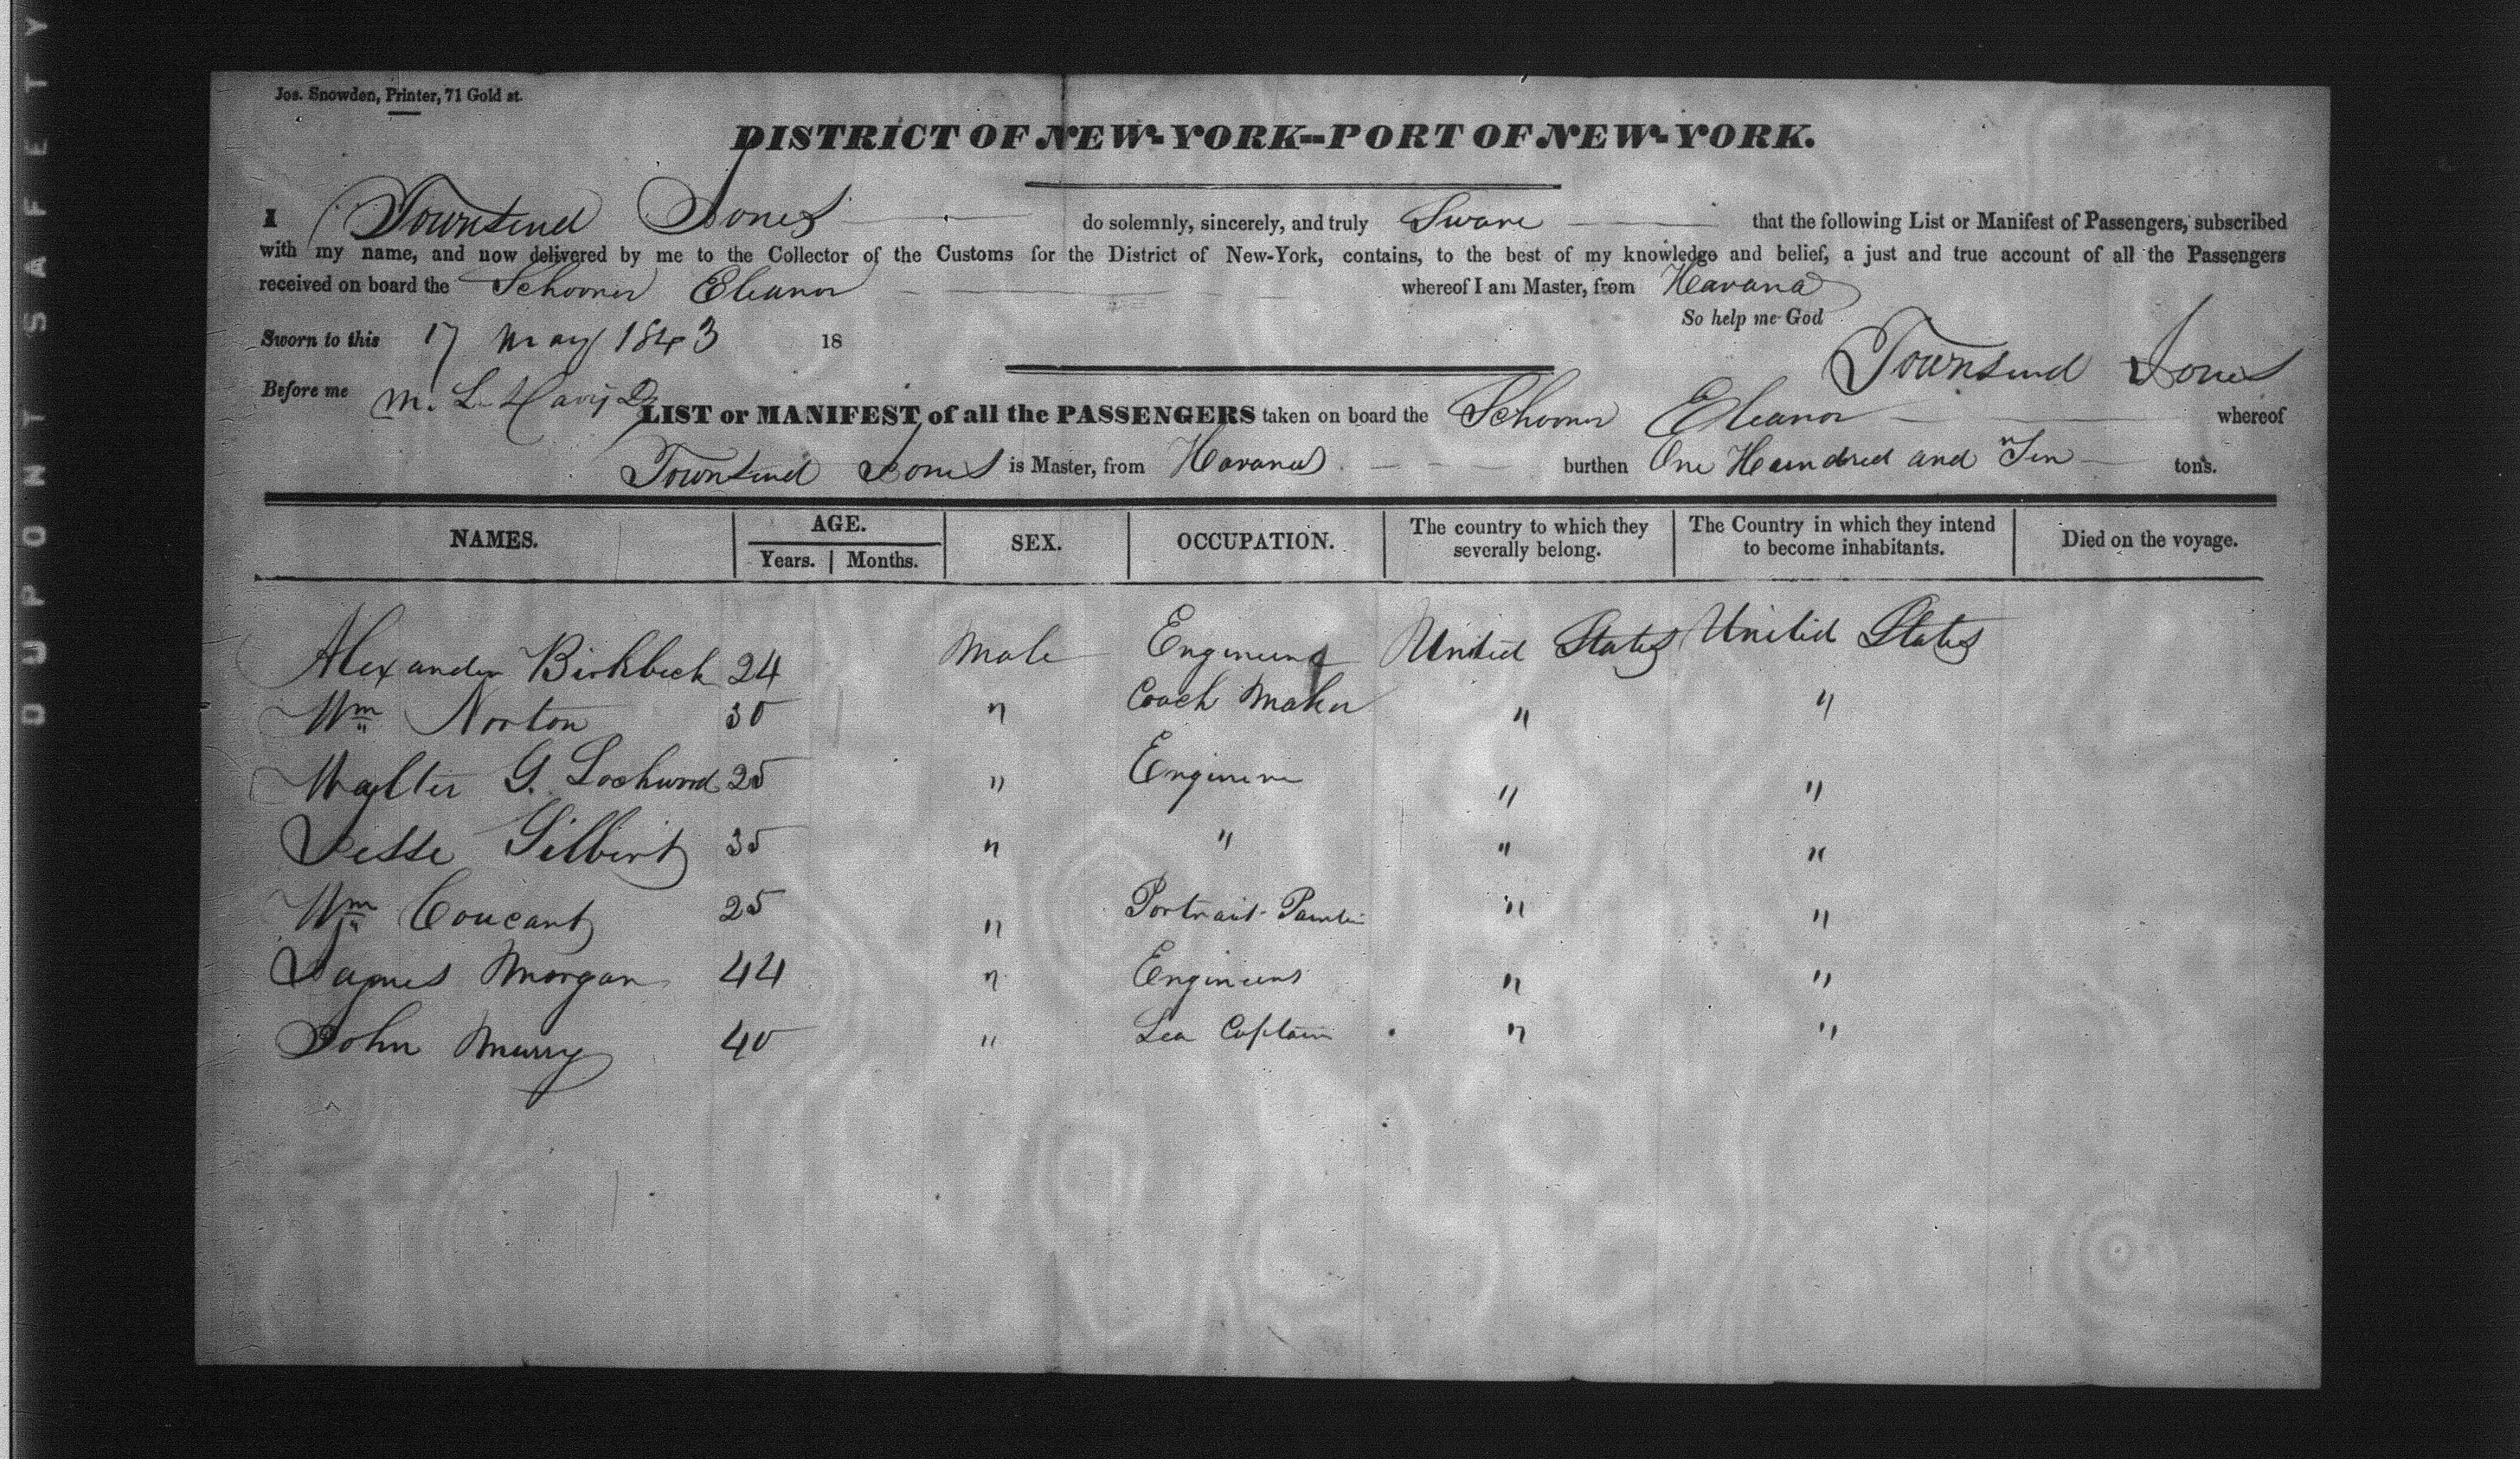 DUPONT SAFETY
Jos. Snowden, Printer, 71 Gold st.
DISTRICT OF NEW-YORK--PORT OF NEW-YORK.
I Townsend Jones do solemnly, sincerely, and truly Sware that the following List or Manifest of Passengers, subscribed
with my name, and now delivered by me to the Collector of the Customs for the District of New-York, contains, to the best of my knowledge and belief, a just and true account of all the Passengers
received on board the Schooner Eleanor whereof I am Master, from Havana
So help me God
Sworn to this 17 May 1843 18
Townsend Jones
Before me M. L.
LIST or MANIFEST of all the PASSENGERS taken on board the Schooner Eleanor whereof
Townsend Jones is Master, from Havana burthen One Hundred and Ten tons.
NAMES. AGE. Years. | Months. SEX. OCCUPATION. The country to which they severally belong. The Country in which they intend to become inhabitants. Died on the voyage.
Alexander Birkbeck 24 Male Engineer United States United States
Wm Norton 30 " Coach Maker " "
Walter G. Lockwood 25 " Engineer " "
Jesse Gilbert 35 " " " "
Wm Coucant 25 " Portrait Painter " "
James Morgan 44 " Engineer " "
John Murry 40 " Sea Captain " "